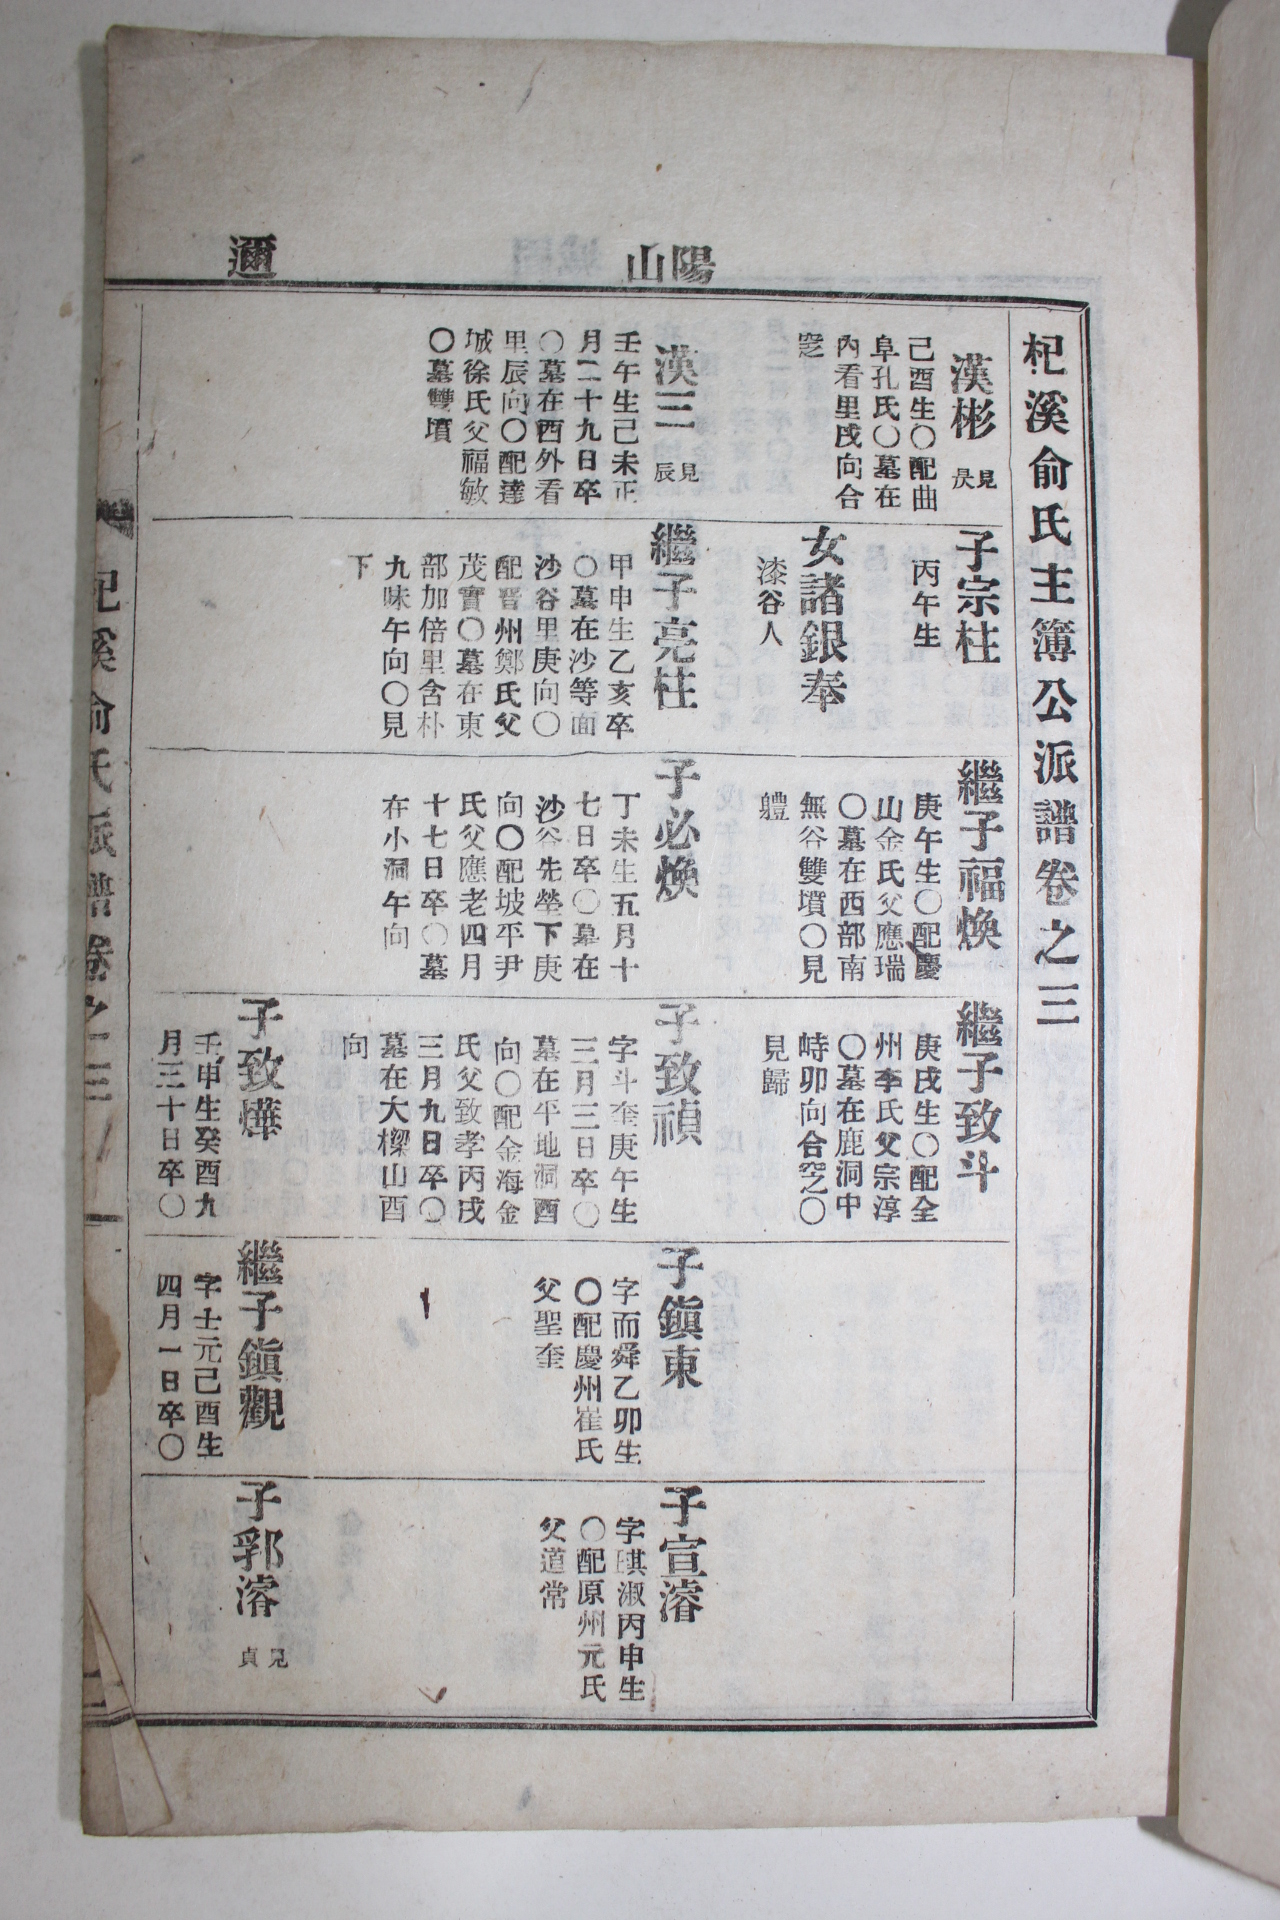 山陽
邇
杞溪俞氏主簿公派譜卷之三
漢彬
見
昃
己酉生〇配曲
阜孔氏〇墓在
內看里戌向合
窆
漢三
見
辰
壬午生己未正
月二十九日卒
〇墓在酉外看
里辰向〇配達
城徐氏父福敏
〇墓雙墳
子宗柱
丙午生
女諸銀奉
漆谷人
繼子亮柱
甲申生乙亥卒
〇墓在沙等面
沙谷里庚向〇
配晋州鄭氏父
茂實〇墓在東
部加倍里含朴
九味午向〇見
下
繼子福煥
庚午生〇配慶
山金氏父應瑞
〇墓在西部南
無谷雙墳〇見
軆
子必煥
丁未生五月十
七日卒〇墓在
沙谷先塋下庚
向〇配坡平尹
氏父應老四月
十七日卒〇墓
在小洞午向
繼子致斗
庚戌生〇配全
州李氏父宗淳
〇墓在鹿洞中
峙卯向合窆〇
見歸
子致禎
字斗奎庚午生
三月三日卒〇
墓在平地洞酉
向〇配金海金
氏父致孝丙戌
三月九日卒〇
墓在大樑山酉
向
子致燁
壬申生癸酉九
月三十日卒〇
子鎭東
字而舜乙卯生
〇配慶州崔氏
父聖奎
繼子鎭觀
字士元己酉生
四月一日卒〇
子宣濬
字琪淑丙申生
〇配原州元氏
父道常
子郛濬
見
貞
杞溪俞氏派譜卷之三
一